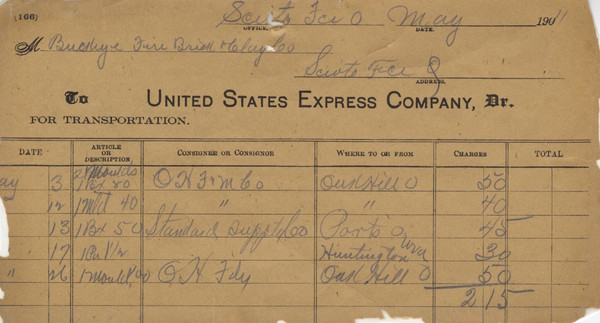 (166) Scioto Fce O May 1901
OFFICE. DATE.
M Buckeye Fire Brick & Clay Co
Scioto Fce O
ADDRESS.
To UNITED STATES EXPRESS COMPANY, Dr.
FOR TRANSPORTATION.
DATE ARTICLE OR DESCRIPTION CONSIGNEE OR CONSIGNOR WHERE TO OR FROM CHARGES TOTAL
2 Moulds
ay 3 1 Bx 80 O H F & M Co Oak Hill O 50
12 40 " " 40
13 1 Bx 50 Standard Supply Co Ports O 45
17 Huntington WVa 30
" 26 1 Mould O H Fdy Oak Hill O 50
2 15